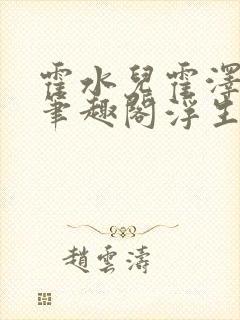 霍水兒霍澤
筆趣閣浮生
趙雲濤